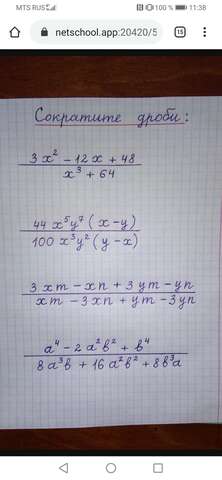 MTS RUS
100 %
11:38
netschool.app:20420/5
15
Сократите дроби:
3x² - 12x + 48
x³ + 64
44 x⁵y⁷ (x - y)
100 x³y² (y - x)
3xm - xn + 3ym - yn
xm - 3xn + ym - 3yn
a⁴ - 2a²b² + b⁴
8a³b + 16a²b² + 8b³a